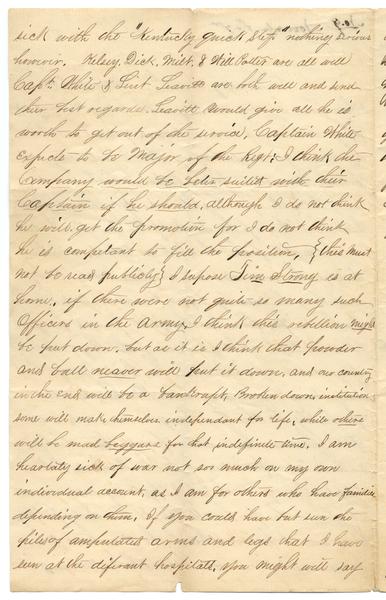 sick with the "Kentucky quick Step" nothing serious
however. Kelsey, Dick, Milt. & Will Potter are all well
Capt. White & Liut Leavitt are both well and send
their best regards. Leavitt would give all he is
worth to get out of the service. Captain White
expects to be Major, of the Regt: I think the
Company would be beter suited with their
Captain if he should, although I do not think
he will get the promotion for I do not think
he is competant to fill the position, {this must
not be read publicly} I supose Jim Strong is at
home, if there were not quite so many such
Officers in the Army, I think this rebellion might
be put down, but as it is I think that powder
and ball neaver will put it down, and our country
in the end will be a bankrupt, Broken down, institution
some will make themselves independant for life, while others
will be mad beggars for that indefinite time. I am
heartily sick of war not so much on my own
individual account, as I am for others who have families
depending on them. If you could have but seen the
piles of amputated arms and legs that I have
seen at the diferant hospitals, you might well say